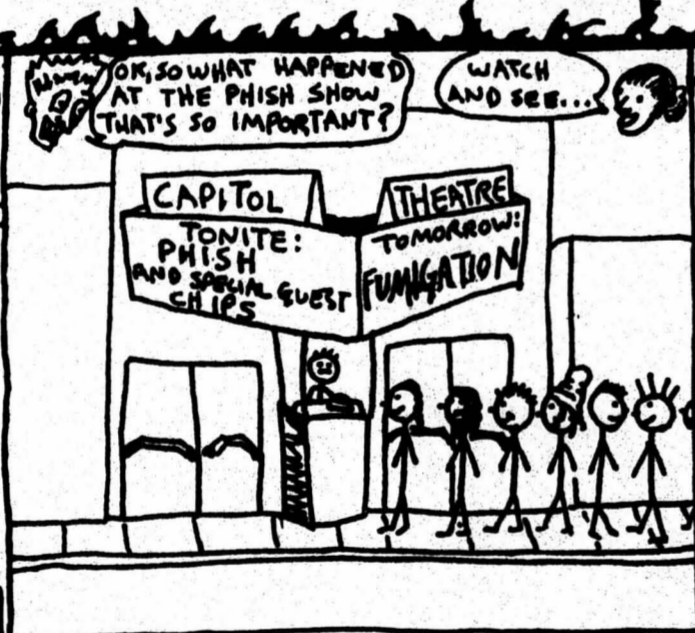 OK, SO WHAT HAPPENED
AT THE PHISH SHOW
THAT'S SO IMPORTANT?
WATCH
AND SEE...
CAPITOL
THEATRE
TONITE:
PHISH
AND SPECIAL GUEST
CHIPS
TOMORROW:
FUMIGATION